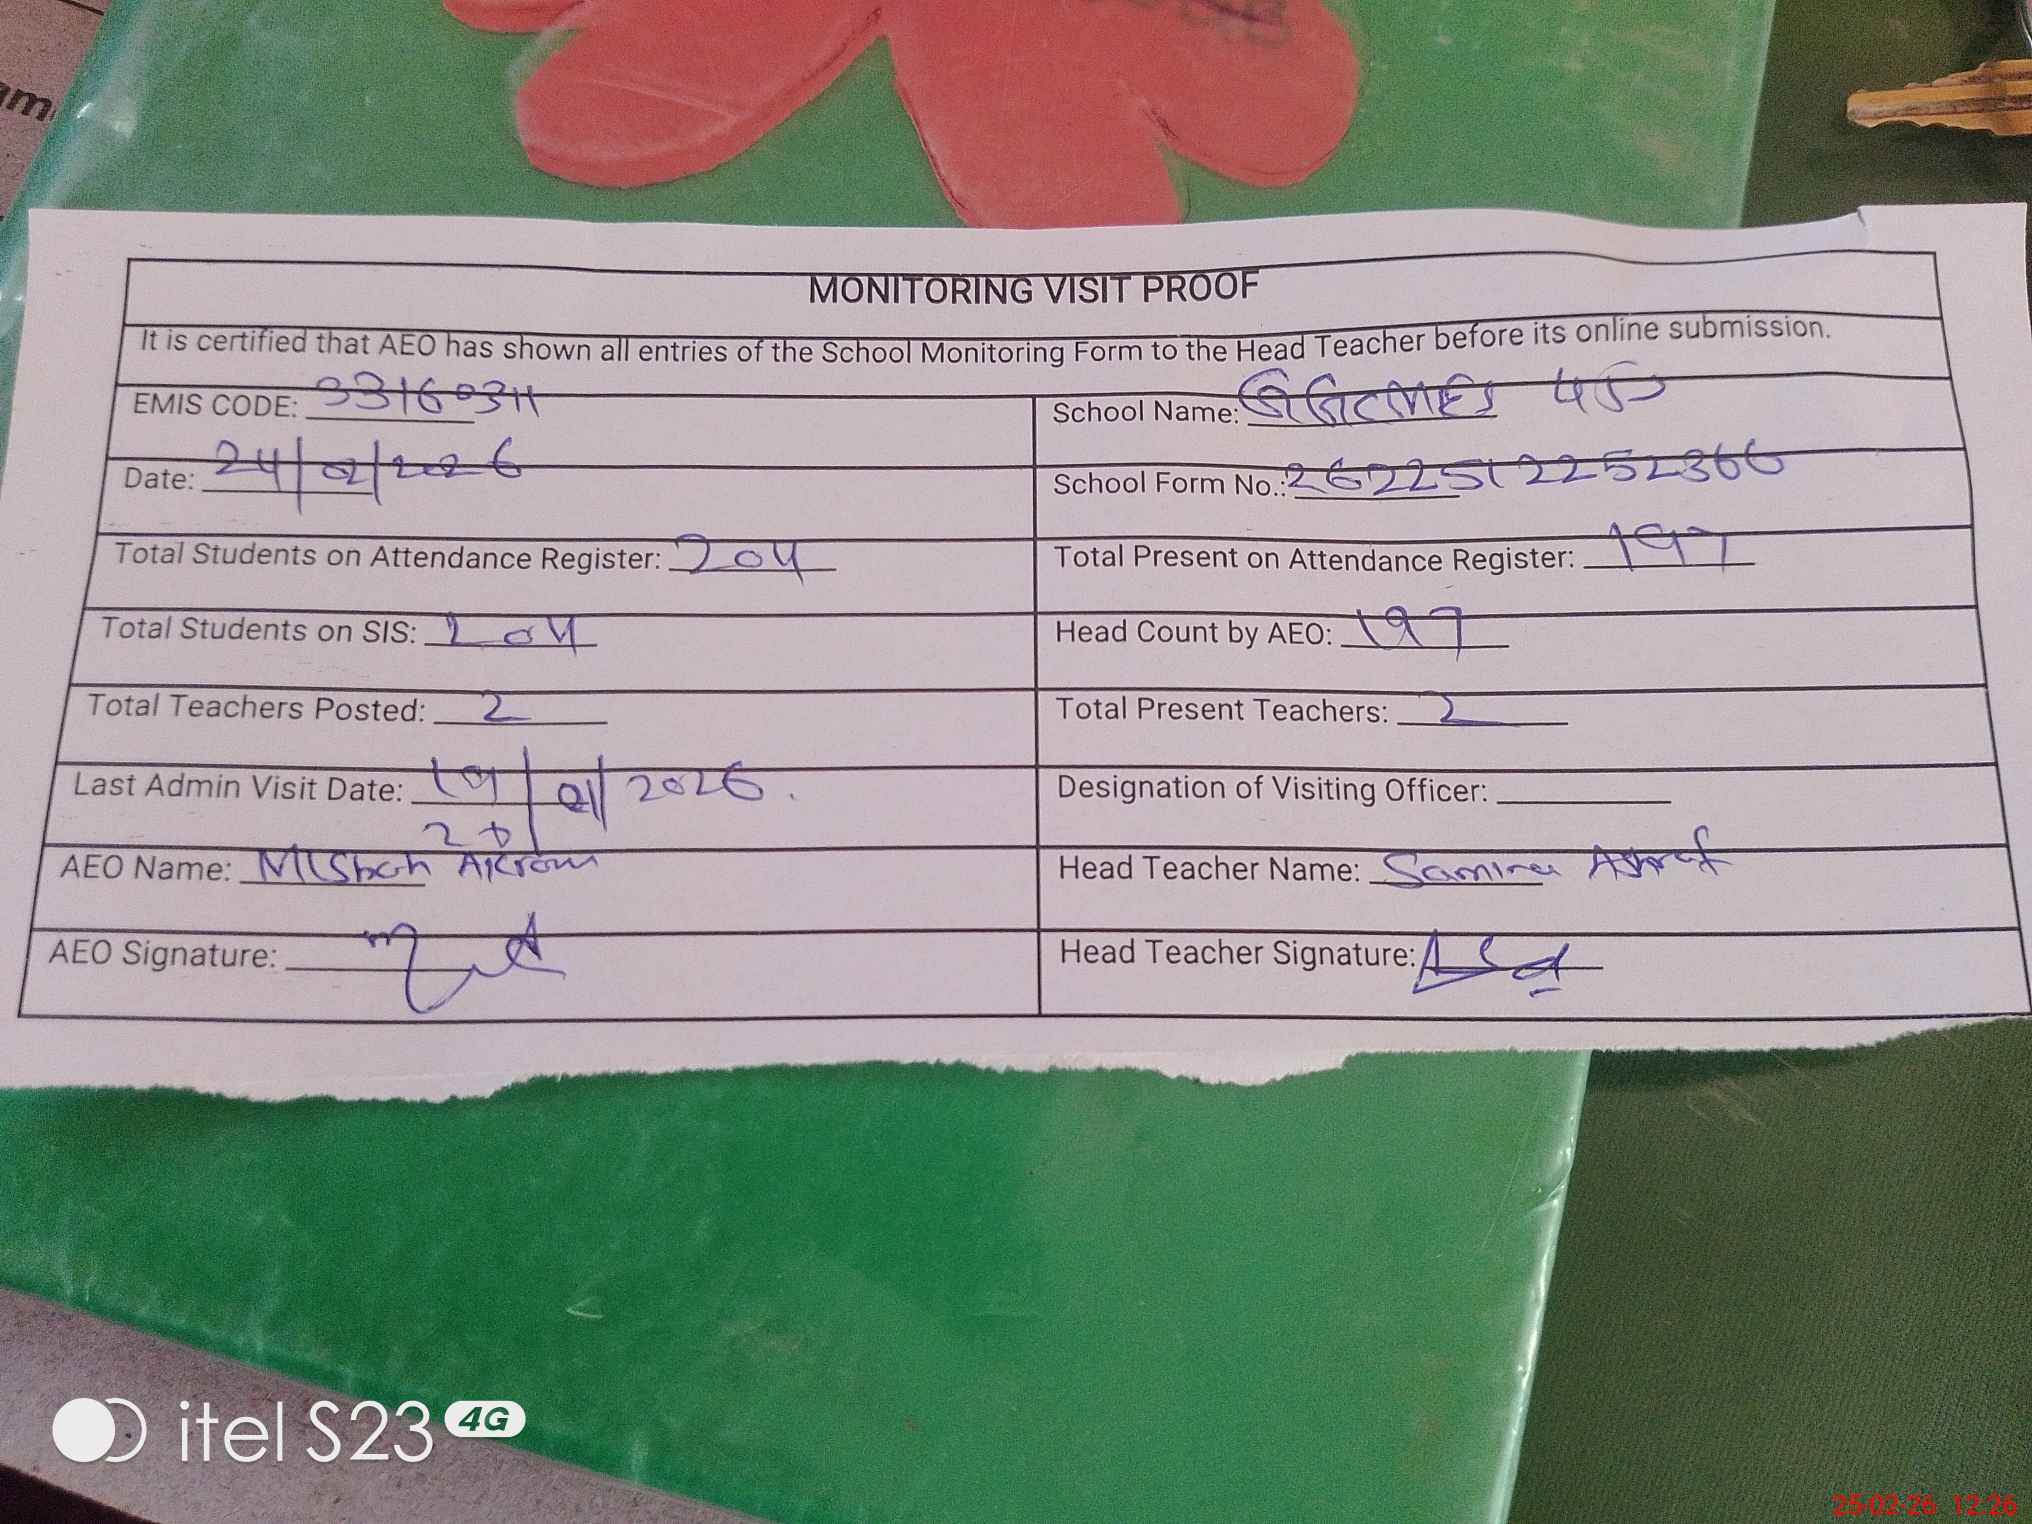 MONITORING VISIT PROOF
It is certified that AEO has shown all entries of the School Monitoring Form to the Head Teacher before its online submission.
EMIS CODE: 33160311
School Name: GGCMES 45
Date: 24/02/2026
School Form No.: 2622512252366
Total Students on Attendance Register: 204
Total Present on Attendance Register: 197
Total Students on SIS: 204
Head Count by AEO: 197
Total Teachers Posted: 2
Total Present Teachers: 2
Last Admin Visit Date: 19/01/2026.
Designation of Visiting Officer:
AEO Name: Misbah Akram
Head Teacher Name: Samina Ashraf
AEO Signature:
Head Teacher Signature:
itel S23 4G
25-02-26 12:26